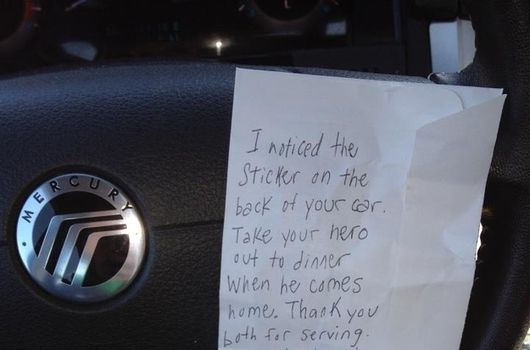 MERCURY
I noticed the
Sticker on the
back of your car.
Take your hero
out to dinner
when he comes
home. Thank you
both for serving.